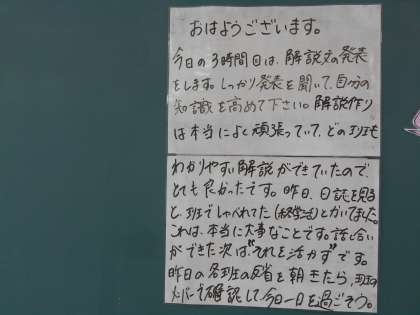 おはようございます。
今日の3時間目は、解説文の発表
をします。しっかり発表を聞いて、自分の
知識を高めて下さい。解説作り
は本当によく頑張っていて、どの班も
わかりやすい解説ができていたので、
とても良かったです。昨日、日誌を見る
と、班でしゃべれてた(科学活)とかいてました。
これは、本当に大事なことです。話し合い
ができた次は、"それを活かす"です。
昨日の各班の反省を朝きたら、班の
メンバーで確認して、今日一日を過ごそう。